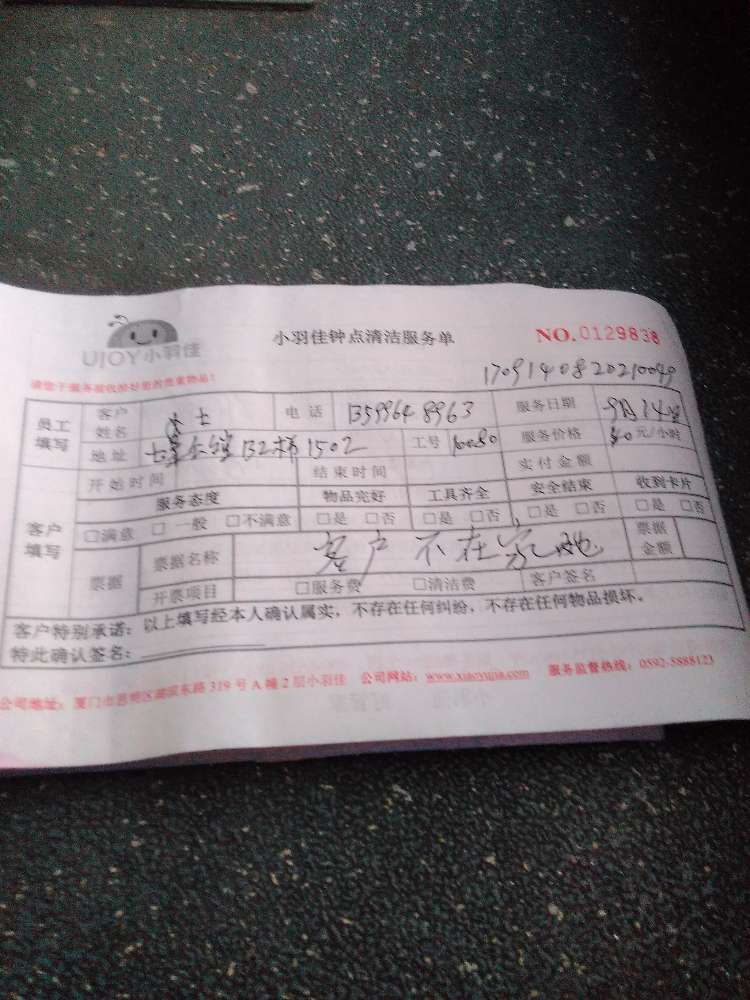 UJOY小羽佳
小羽佳钟点清洁服务单
NO.0129838
1709140820210049
员工填写 客户姓名 女士 电话 服务日期 9月14日
地址 B2梯1502 工号 服务价格 元/小时
客户填写 开始时间 结束时间 实付金额
服务态度 物品完好 工具齐全 安全结束 收到卡片
□满意 □一般 □不满意 □是 □否 □是 □否 □是 □否 □是 □否
票据 票据名称 客户不在家 票据金额
开票项目 □服务费 □清洁费 客户签名
客户特别承诺：以上填写经本人确认属实，不存在任何纠纷，不存在任何物品损坏。
特此确认签名：
公司地址：厦门市思明区湖滨东路319号A幢2层小羽佳 公司网站：www.xiaoyujia.com 服务监督热线：0592-5888123